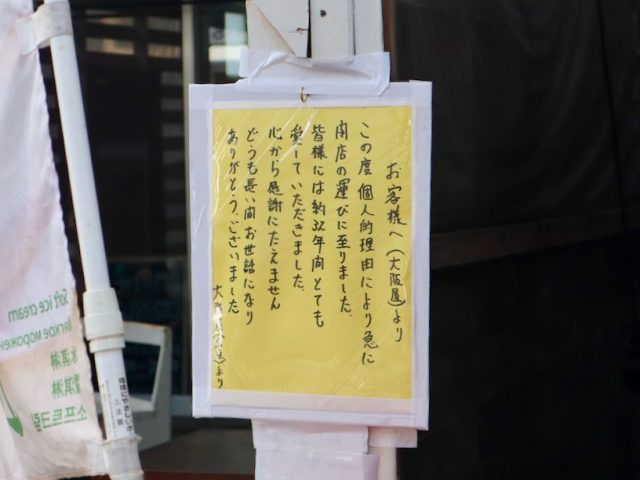 お客様へ（大阪屋）より
この度個人的理由により急に
閉店の運びに至りました。
皆様には約32年間とても
愛していただきました。
心から感謝にたえません
どうも長い間お世話になり
ありがとうございました
より
Soft ice cream
Мягкое морожен
冰淇淋
霜淇淋
소프트크림
環境にやさしい